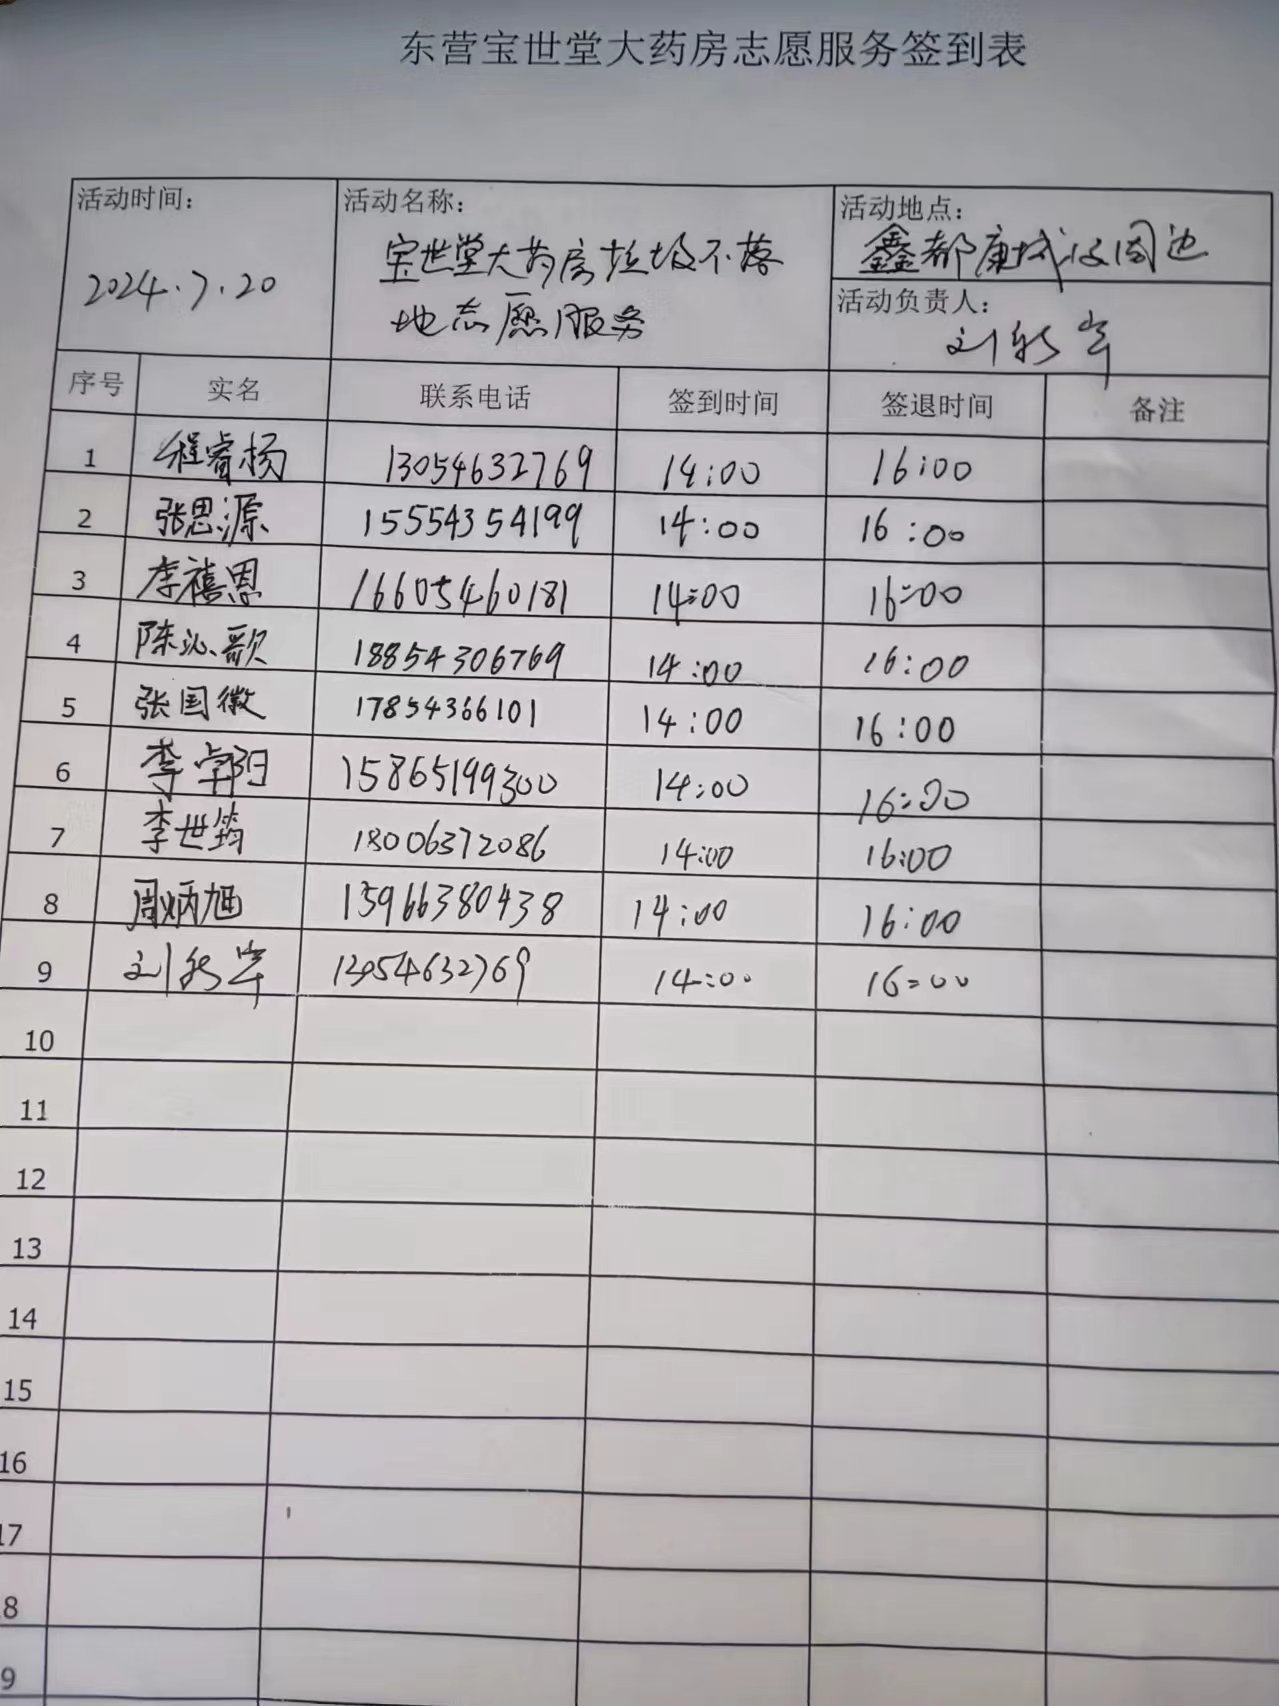 东营宝世堂大药房志愿服务签到表
活动时间： 活动名称： 活动地点：
鑫都康城及周边
宝世堂大药房垃圾不落
2024.7.20
地志愿服务
活动负责人：
刘
序号 实名 联系电话 签到时间 签退时间 备注
1 程睿杨 13054632769 14:00 16:00
2 张思源 15554354199 14:00 16:00
3 李禧恩 16605460181 14:00 16:00
4 陈沁歌 18854306769 14:00 16:00
5 张国徽 17854366101 14:00 16:00
6 李卓阳 15865199300 14:00 16:00
7 李世筠 18006372086 14:00 16:00
8 周炳旭 13966380438 14:00 16:00
9 刘 13054632769 14:00 16:00
10
11
12
13
14
15
16
17
8
9